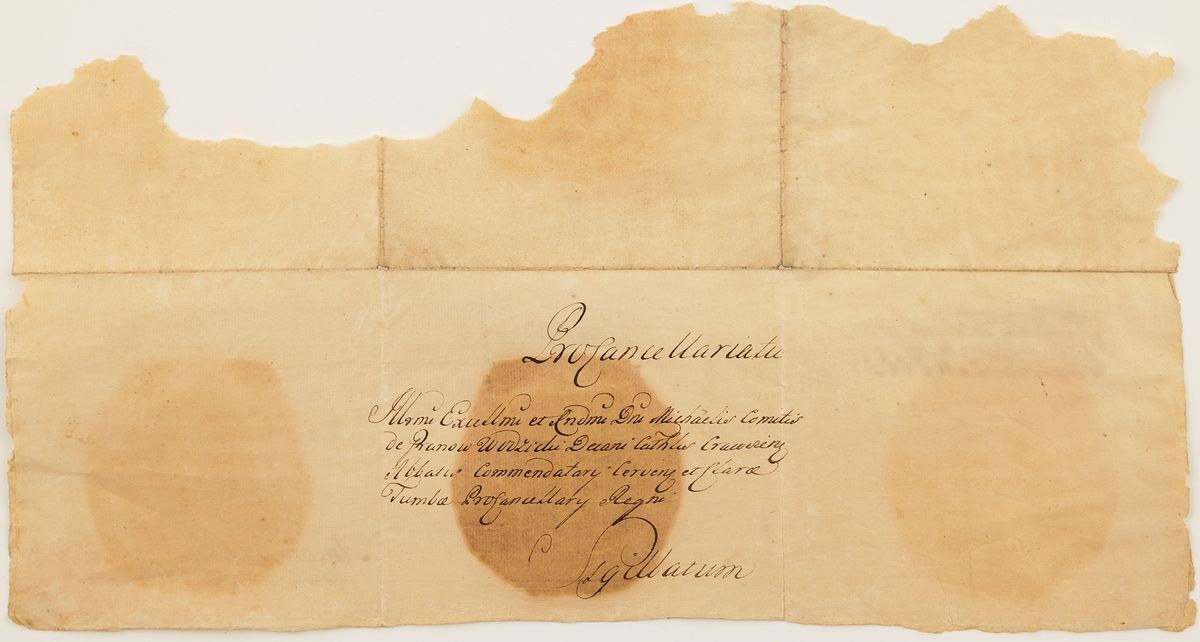 Procancellariatu
Illrmi Excellmi et Rndmi Dni Michaelis Comitis
de Granow Wodzicki Decani Cathlis Cracovien
Abbatis Commendatary Cervien et Claræ
Tumbæ Procancellary Regni
Sigillatum